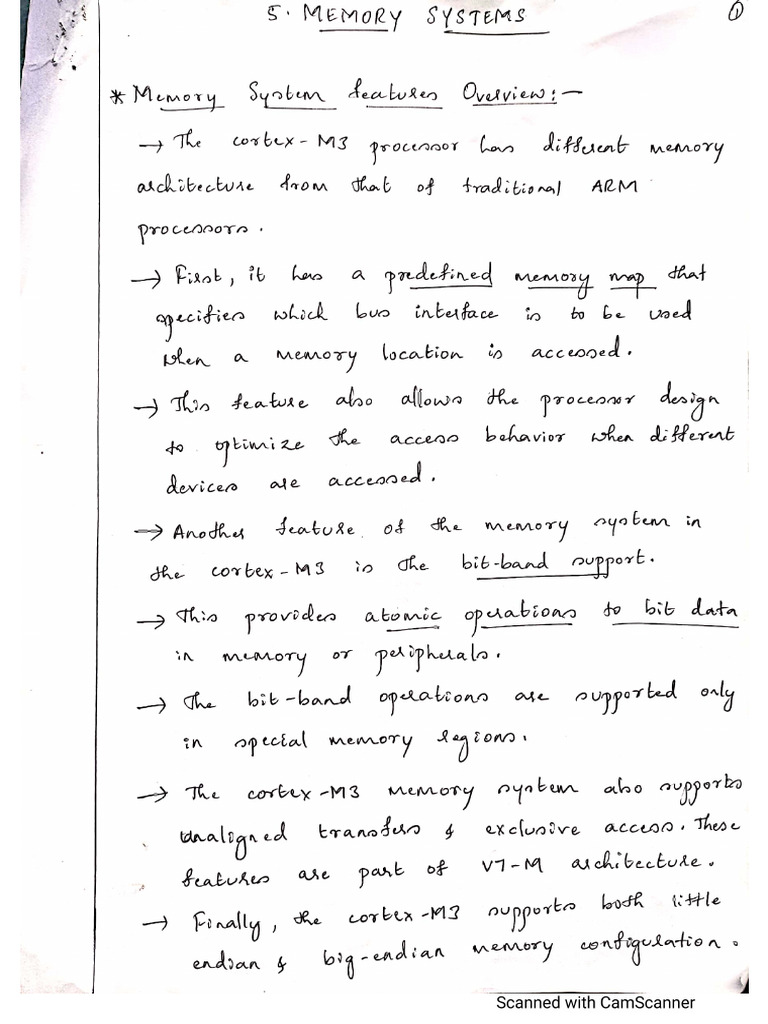 5. MEMORY SYSTEMS
1
* Memory System features Overview:-
→ The cortex-M3 processor has different memory
architecture from that of traditional ARM
processors.
→ First, it has a predefined memory map that
specifies which bus interface is to be used
when a memory location is accessed.
→ This feature also allows the processor design
to optimize the access behavior when different
devices are accessed.
→ Another feature of the memory system in
the cortex-M3 is the bit-band support.
→ This provides atomic operations to bit data
in memory or peripherals.
→ The bit-band operations are supported only
in special memory regions.
→ The cortex-M3 memory system also supports
unaligned transfers & exclusive access. These
features are part of V7-M architecture.
→ Finally, the cortex-M3 supports both little
endian & big-endian memory configuration.
Scanned with CamScanner